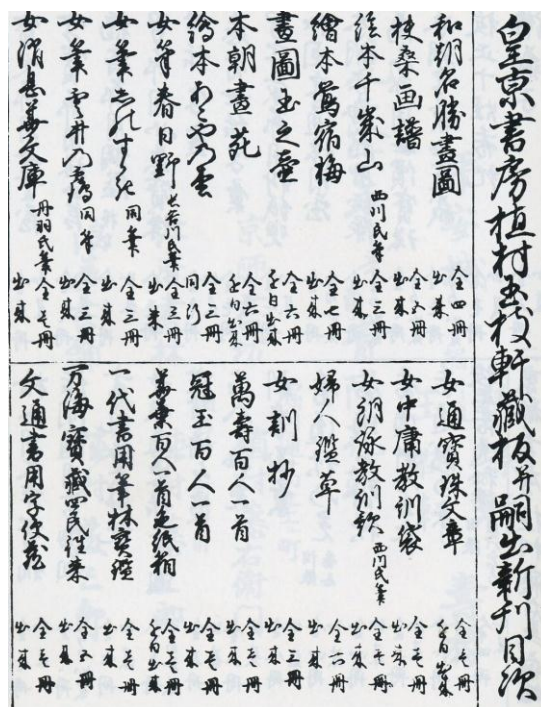 皇京書房植村玉枝軒藏板并嗣出新刊目次
和朝名勝畫圖 全四冊 出来
扶桑画譜 全五冊 出来
絵本千歳山 西川氏筆 全三冊 出来
繪本鶯宿梅 全七冊 出来
畫圖玉之壷 全六冊 近日出来
本朝畫苑 全六冊 近日出来
繪本 全三冊
女筆春日野 長谷川氏筆 全三冊 出来
女筆 同筆 全三冊 出来
女筆雲井乃鶴 同筆 全三冊 出来
女消息華文庫 丹羽氏筆 全壱冊 出来
女通寶珠文章 全壱冊 近日出来
女中庸教訓袋 全壱冊 出来
女朗詠教訓歌 西川氏筆 全壱冊 出来
婦人鑑草 全六冊 出来
女訓抄 全壱冊 出来
萬壽百人一首 全壱冊 出来
冠玉百人一首 全壱冊 出来
萬葉百人一首色紙箱 全壱冊 近日出来
一代書用筆林寶鑑 全壱冊 出来
万海寶藏四民往来 全五冊 出来
文通書用字便蔵 全壱冊 出来